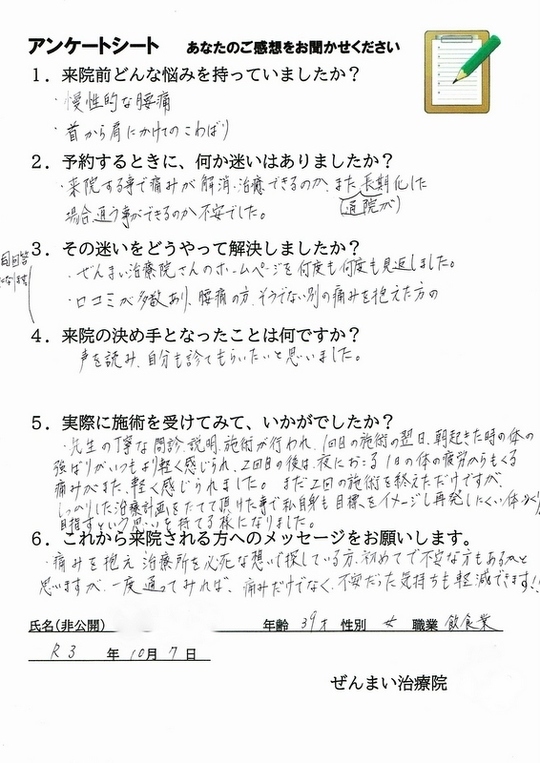 アンケートシート あなたのご感想をお聞かせください
1．来院前どんな悩みを持っていましたか？
・慢性的な腰痛
・首から肩にかけてのこわばり
2．予約するときに、何か迷いはありましたか？
・来院する事で痛みが解消・治療できるのか、また長期化した
（通院が）
場合、通う事ができるのか不安でした。
3．その迷いをどうやって解決しましたか？
・ぜんまい治療院さんのホームページを何度も何度も見返しました。
・口コミが多数あり、腰痛の方、そうでない別の痛みを抱えた方の
4．来院の決め手となったことは何ですか？
声を読み、自分も診てもらいたいと思いました。
5．実際に施術を受けてみて、いかがでしたか？
・先生の丁寧な問診、説明、施術が行われ、1回目の施術の翌日、朝起きた時の体の
強ばりがいつもより軽く感じられ、2回目の後は、夜におこる1日の体の疲労からもくる
痛みがまた、軽く感じられました。まだ2回の施術を終えただけですが、
しっかりした治療計画をたてて頂けた事で私自身も目標をイメージし再発しにくい体づくり
目指すという思いを持てる様になりました。
6．これから来院される方へのメッセージをお願いします。
・痛みを抱え治療所を必死な想いで探している方、初めてで不安な方もあるかと
思いますが、一度通ってみれば、痛みだけでなく、不安だった気持ちも軽減できます!!
氏名(非公開) 年齢 39才 性別 女 職業 飲食業
R3 年 10月 7日
ぜんまい治療院